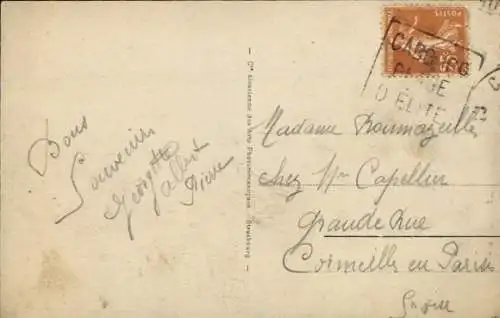 Bons
Souvenirs
Georgette
Pierre
Cie Alsacienne des Arts Photomécaniques - Strasbourg
POSTES
CABOURG
PLAGE
D ELITE
Madame
chez Mr Capellier
Grande Rue
Cormeilles en Parisis
S et Oise